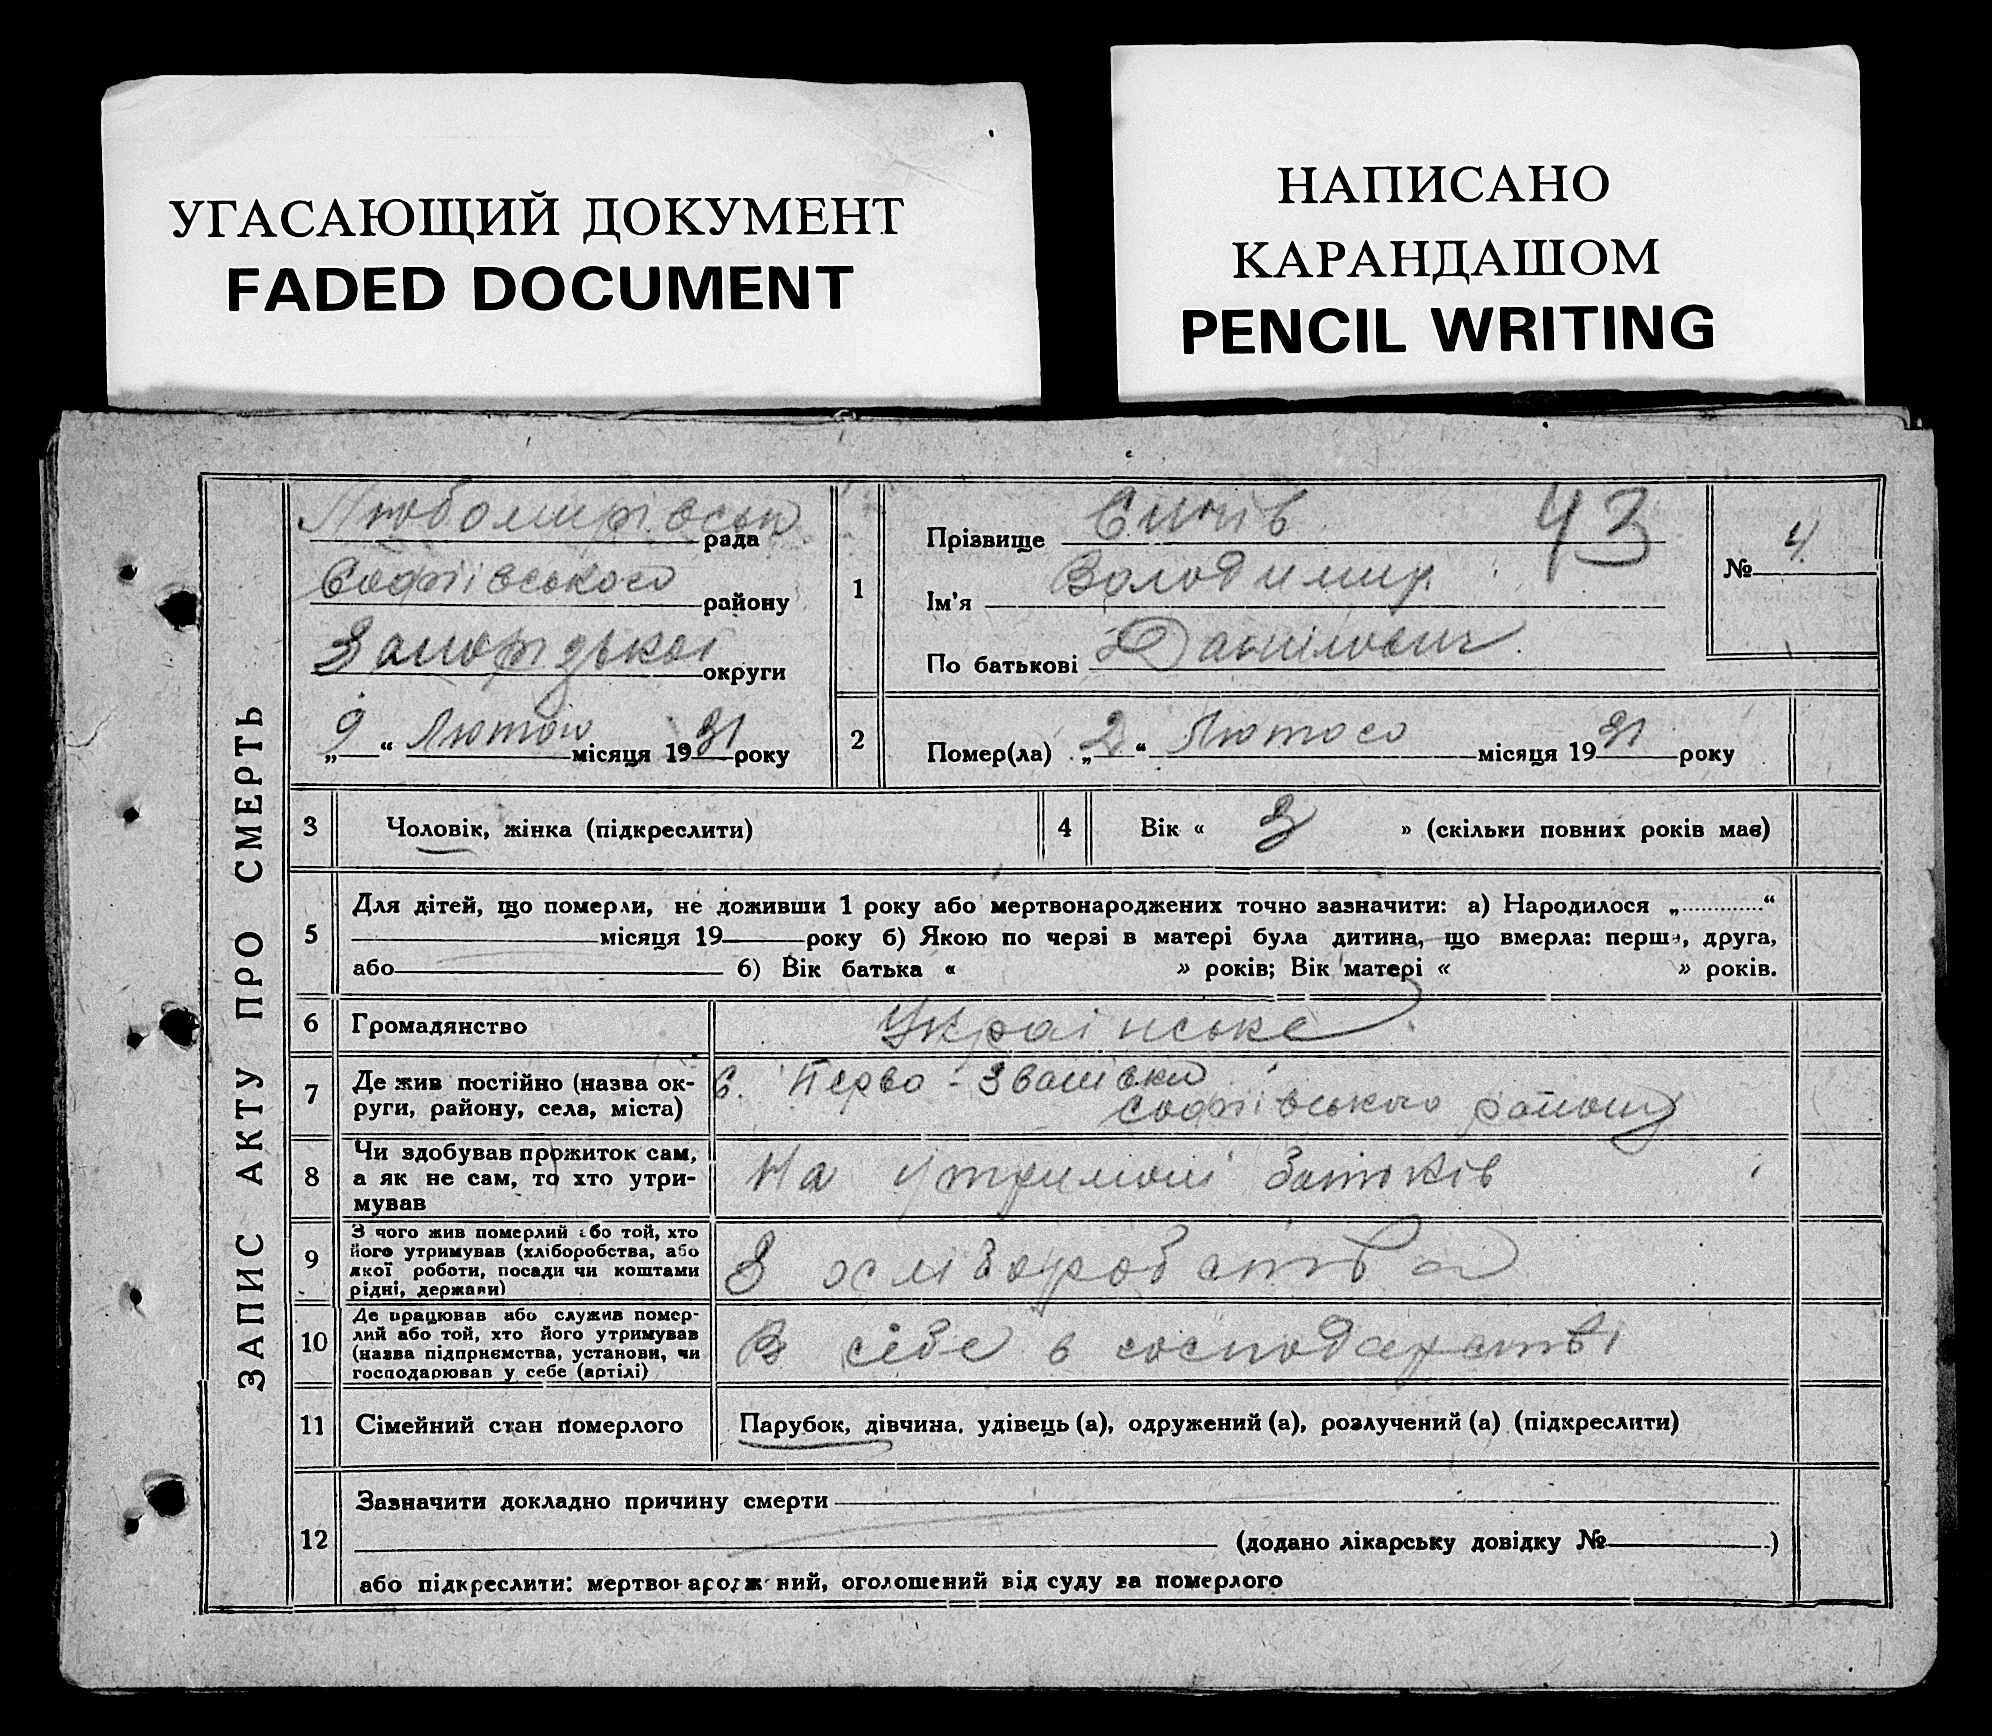 УГАСАЮЩИЙ ДОКУМЕНТ
FADED DOCUMENT
НАПИСАНО
КАРАНДАШОМ
PENCIL WRITING
ЗАПИС АКТУ ПРО СМЕРТЬ
Любомирівськ рада
Софіївського району
округи
„ 9 “ Лютого місяця 1931 року
1
Прізвище
43
Ім'я Володимир
По батькові Данілович
№ 4
2
Помер(ла) „ 2 “ Лютого місяця 1931 року
3
Чоловік, жінка (підкреслити)
4
Вік « 3 » (скільки повних років має)
5
Для дітей, що померли, не доживши 1 року або мертвонароджених точно зазначити: а) Народилося „ “
місяця 19 року б) Якою по черзі в матері була дитина, що вмерла: перша, друга,
або б) Вік батька « » років; Вік матері « » років.
6
Громадянство
Українське
7
Де жив постійно (назва ок-
руги, району, села, міста)
с. Перво-Званівка
Софіївського району
8
Чи здобував прожиток сам,
а як не сам, то хто утри-
мував
На батьків
9
З чого жив померлий або той, хто
його утримував (хліборобства, або
якої роботи, посади чи коштами
рідні, держави)
З
10
Де працював або служив помер-
лий або той, хто його утримував
(назва підприємства, установи, чи
господарював у себе (артілі)
В себе в господарстві
11
Сімейний стан померлого
Парубок, дівчина, удівець (а), одружений (а), розлучений (а) (підкреслити)
12
Зазначити докладно причину смерти
(додано лікарську довідку № )
або підкреслити: мертвонароджений, оголошений від суду за померлого